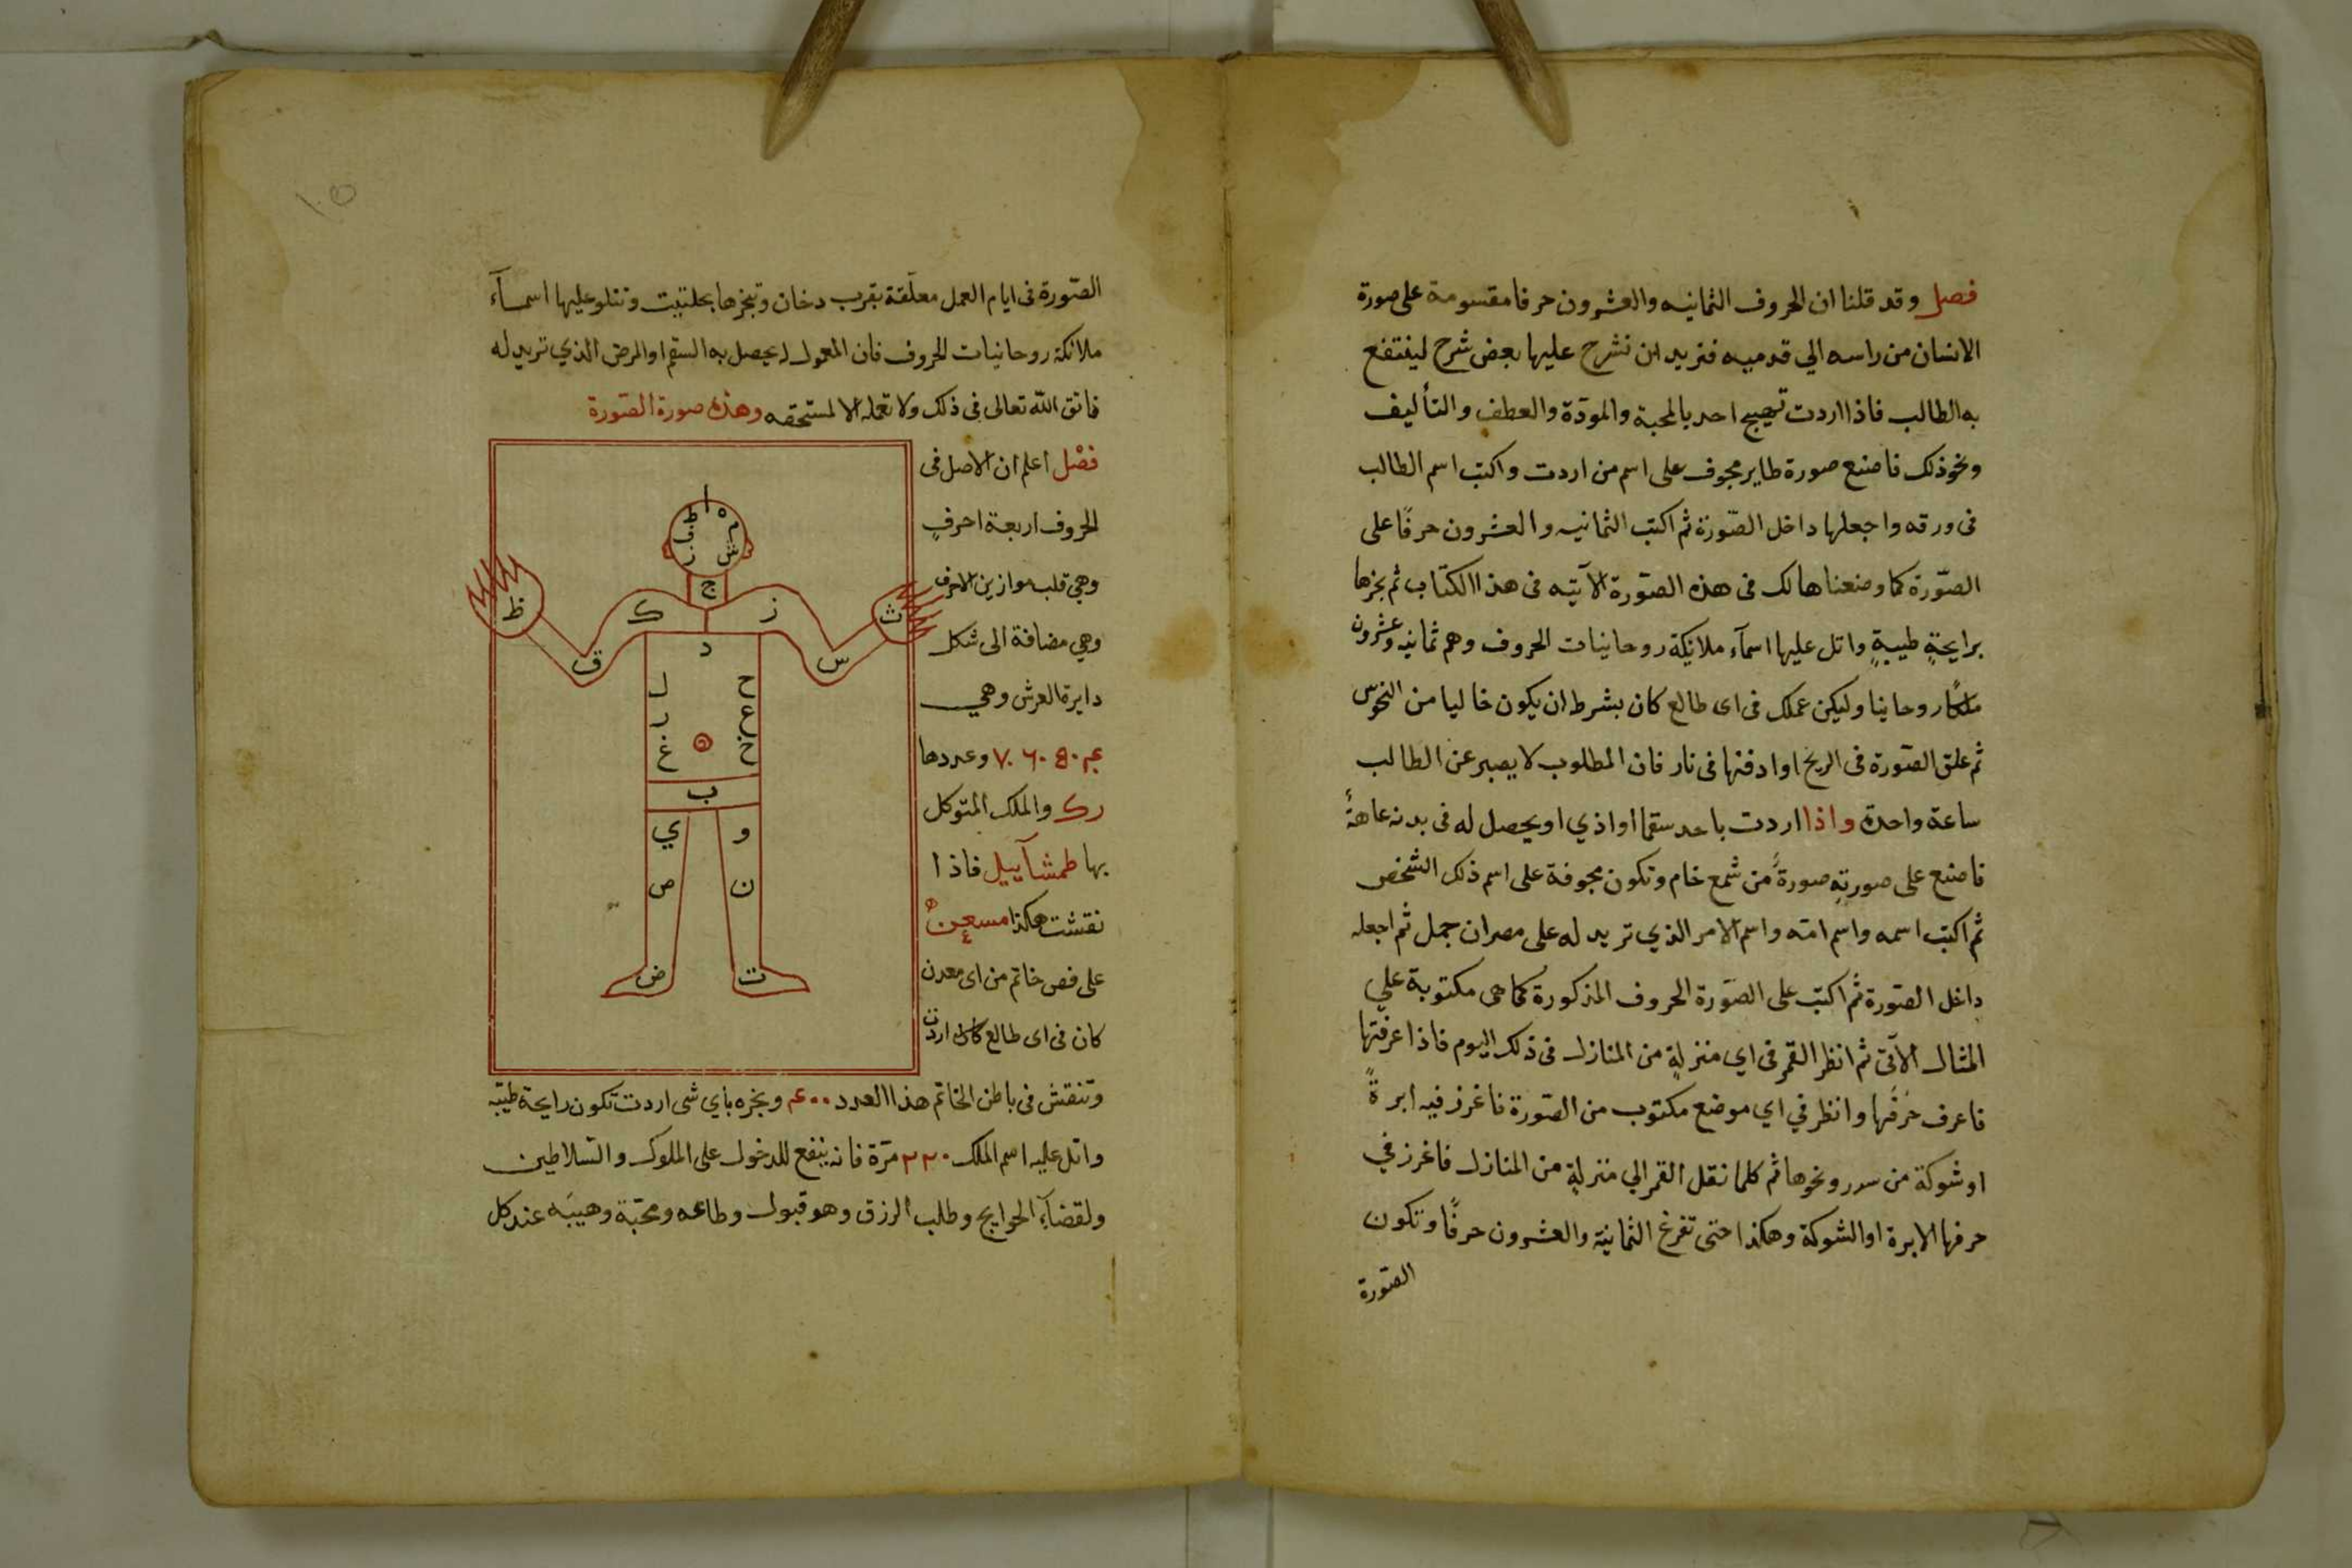 فصل وقد قلنا ان الحروف الثمانيه والعشرون حرفا مقسومة على صورة
الانسان من راسه الي قدميه فنريد ان نشرح عليها بعض شرح لينتفع
به الطالب فاذا اردت تهييج احد بالمحبة والمودّة والعطف والتأليف
ونحو ذلك فاصنع صورة طاير مجوف على اسم من اردت واكتب اسم الطالب
فى ورقه واجعلها داخل الصّورة ثم اكتب الثمانيه والعشرون حرفًا على
الصّورة كما وضعناها لك فى هذه الصّورة الآتيه فى هذا الكتاب ثم بخرها
برايحةٍ طيبةٍ واتل عليها اسمآء ملائيكة روحانيات الحروف وهم ثمانيه وعشرون
ملكًا روحانيا وليكن عملك فى اى طالع كان بشرط ان يكون خاليا من النحوس
ثم علق الصّورة فى الريح او ادفنها فى نار فان المطلوب لا يصبر عن الطالب
ساعة واحدة واذا اردت باحد سقما او اذي او يحصل له فى بدنه عاهةٌ
فاصنع على صورتهِ صورةً من شمع خام وتكون مجوفة على اسم ذلك الشخص
ثم اكتب اسمه واسم امّه واسم الامر الذي تريد له على مصران جمل ثم اجعله
داخل الصّورة ثم اكتب على الصّورة الحروف المذكورة كما هى مكتوبة علي
المثال الآتى ثم انظر القمر فى اي منزلةٍ من المنازل فى ذلك اليوم فاذا عرفتها
فاعرف حَرفَها وانظر في اي موضع مكتوب من الصّورة فاغرز فيه ابرةً
او شوكة من سدر ونحوها ثم كلما نقل القمر الي منزلةٍ من المنازل فاغرز في
حرفها الابرة او الشوكة وهكذا حتى تفرغ الثمانية والعشرون حرفًا وتكون
الصّورة
١٥
الصّورة فى ايام العمل معلّقة بقرب دخان وتبخرها بحلتيت وتتلو عليها اسمآء
ملائكة روحانيات الحروف فان المعمول له يحصل به السقم او المرض الذي تريد له
فاتق الله تعالى فى ذلك ولا تعمله الا لمستحقه وهذه صورة الصّورة
فصْل اعلم ان الاصل فى
الحروف اربعة احرفٍ
وهي قلب موازين الاحرف
وهي مضافة الى شكل
دايرة العرش وهي
وعددها
رك والملك المتوكل
بها طمشآييل فاذا
نقشت هكذا
على فص خاتم من اى معدن
كان فى اى طالع كان اردت
وتنقش فى باطن الخاتم هذا العدد وبخره باي شى اردت تكون رايحة طيّبه
واتل عليه اسم الملك ٢٢٠ مرّة فانه ينفع للدخول على الملوك والسّلاطين
ولقضآءِ الحوايج وطلب الرزق وهو قبول وطاعه ومحبّة وهيبَه عند كل
ا
ط ه
ف م
ز ش
ج
ظ ك ز ث
ق د س
ل ح
ر ع
غ ه خ
ب
ي و
ص ن
ض ت